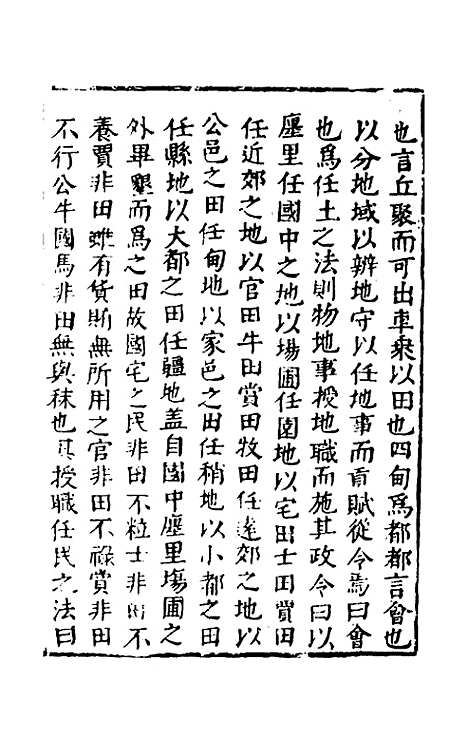 也言丘聚而可出車乘以田也四甸爲都都言會也
以分地域以辨地守以任地事而貢賦從令焉曰會
也爲任土之法則物地事授地職而施其政令曰以
廛里任國中之地以場圃任園地以宅田士田賞田
任近郊之地以官田牛田賞田牧田任遠郊之地以
公邑之田任甸地以家邑之田任稍地以小都之田
任縣地以大都之田任疆地蓋自國中廛里塲圃之
外畢墾而爲之田故國宅之民非田不粒士非田不
養賈非田雖有貨賄無所用之官非田不祿賞非田
不行公牛國馬非田無與秣也其授職任民之法曰